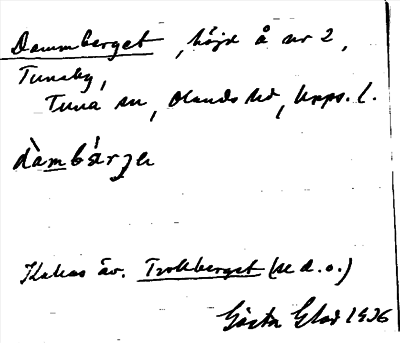 Dammberget, höjd å nr 2,
Tunaby,
Tuna sn, Olands hd, Upps. l.
dàmbárje
Kallas äv. Trollberget (se d. o.)
Gösta Elod 1936